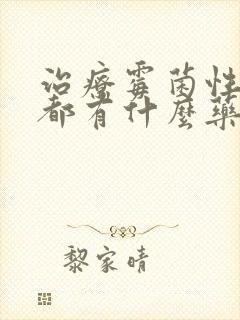 治療霉菌性
都有什麼藥
黎家晴